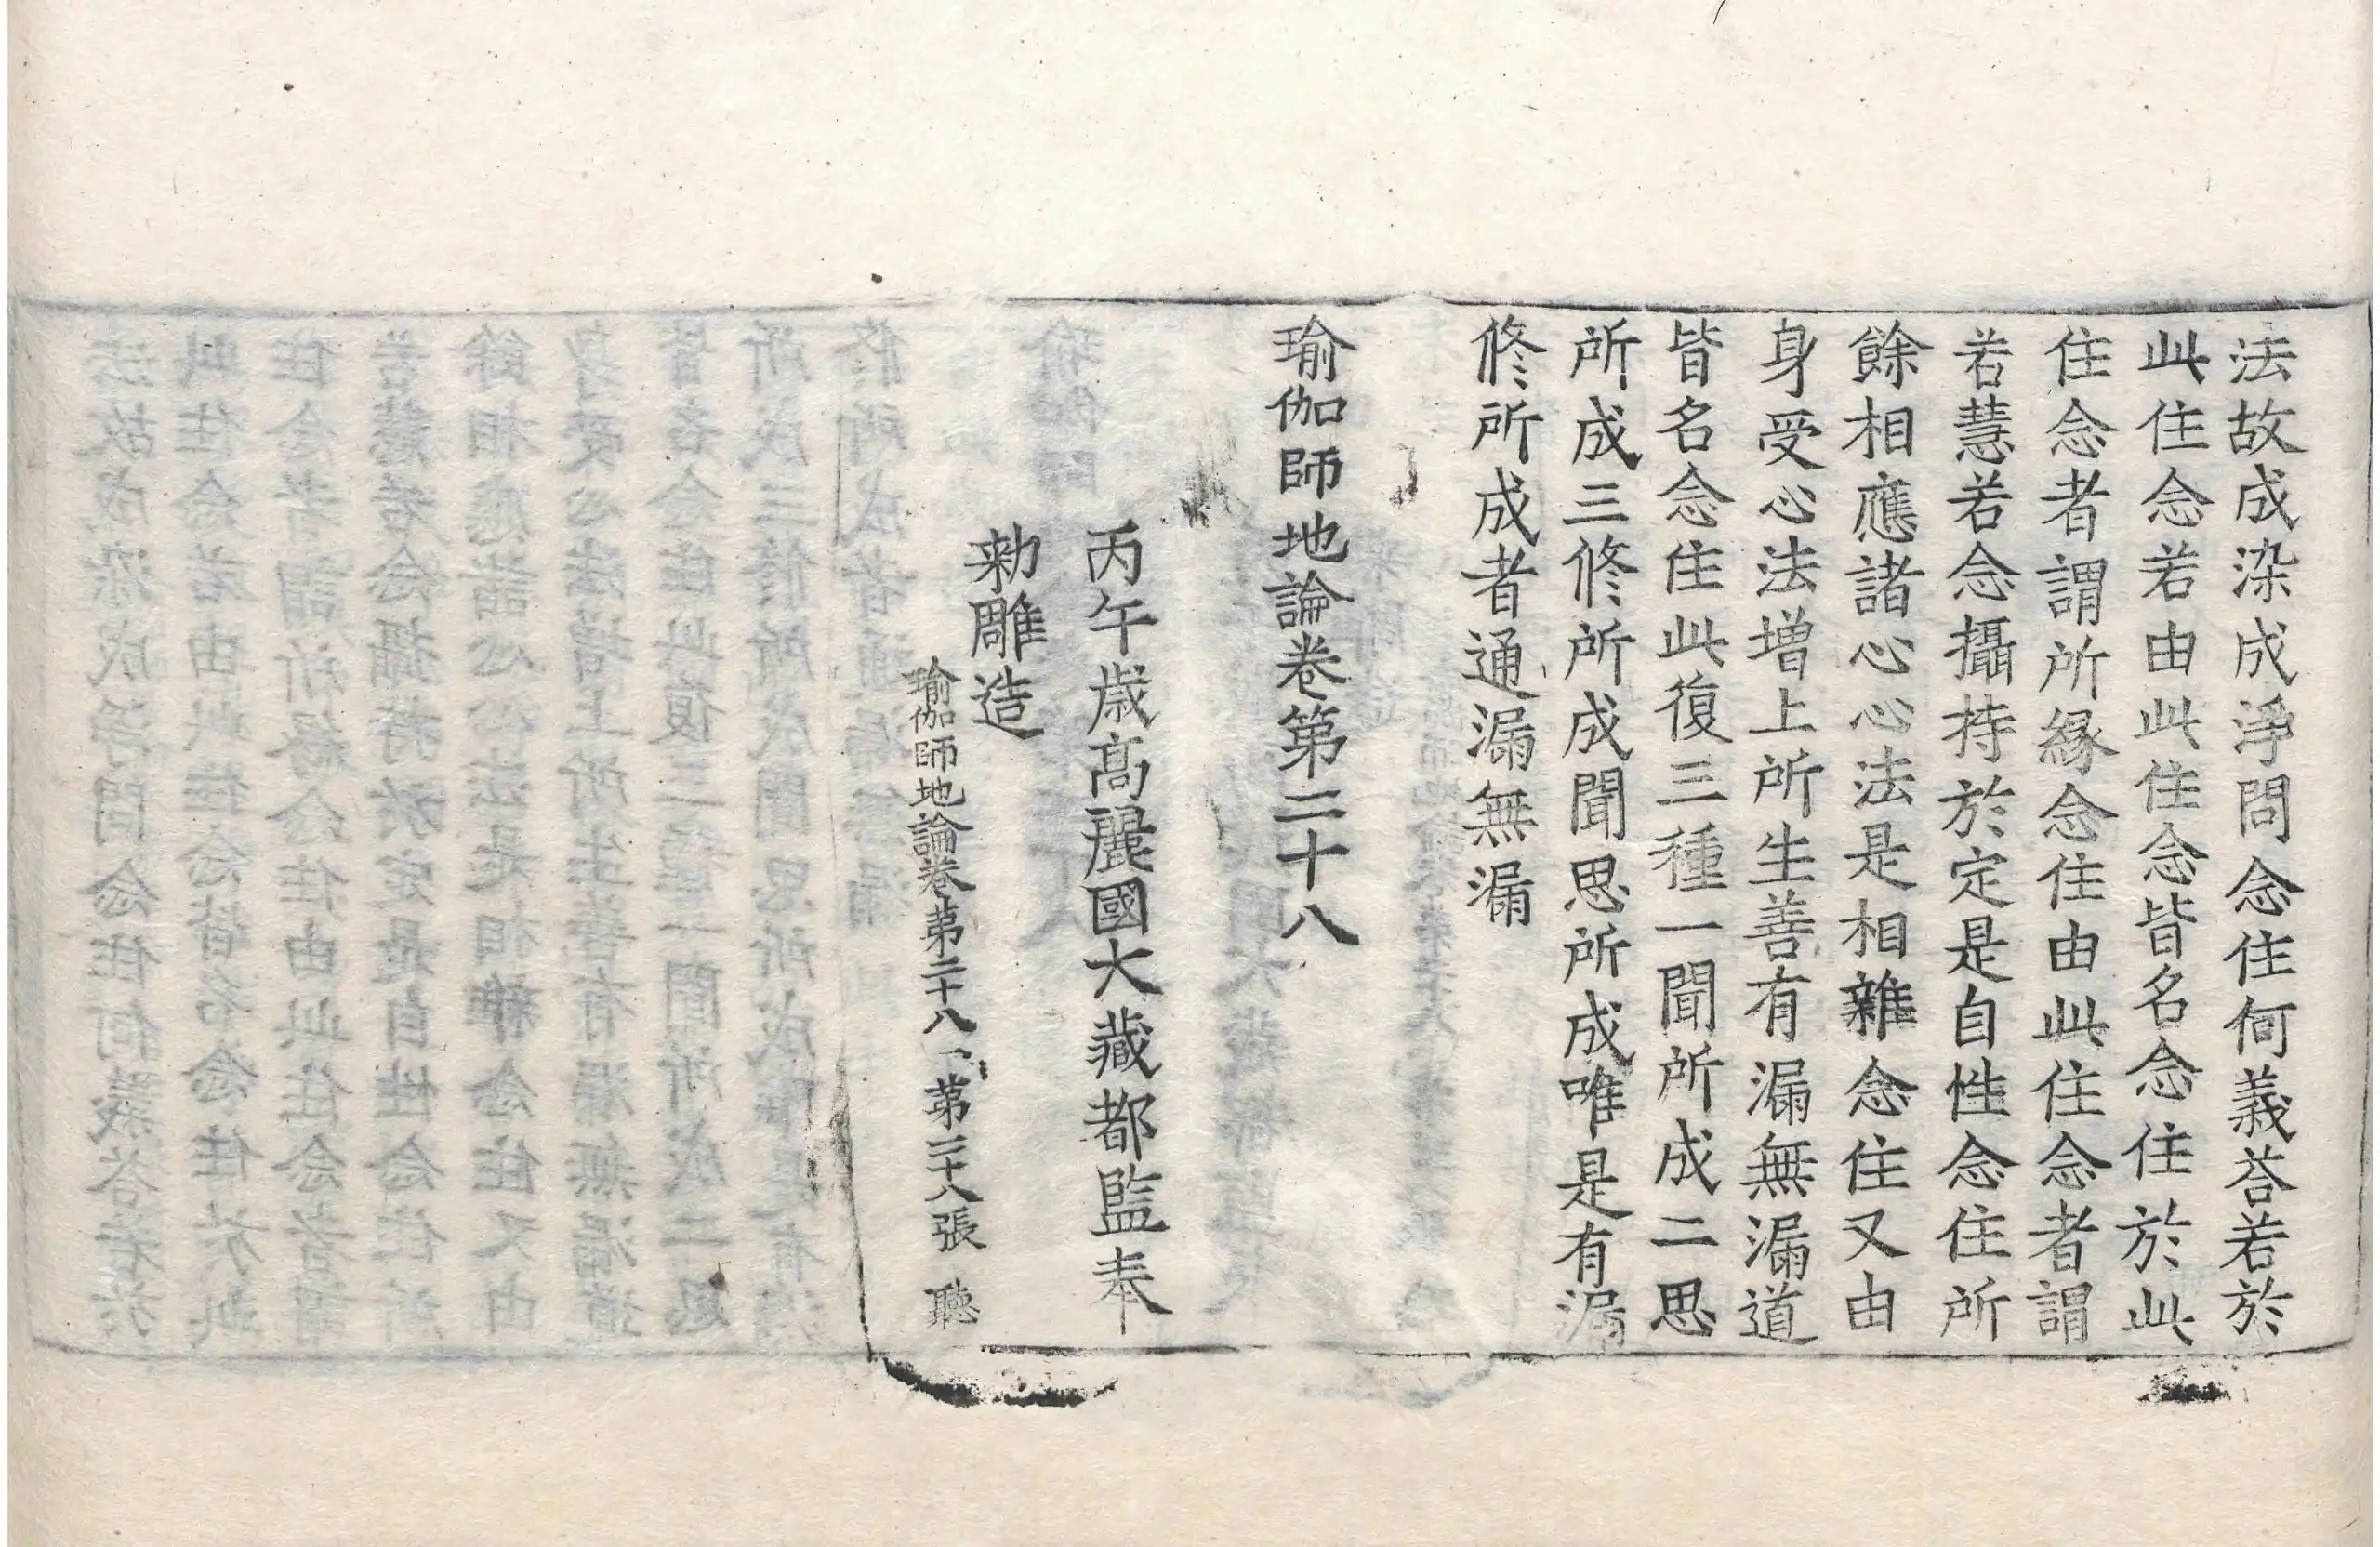 法故成染成淨問念住何義荅若於
此住念若由此住念皆名念住於此
住念者謂所緣念住由此住念者謂
若慧若念攝持於定是自性念住所
餘相應諸心心法是相雜念住又由
身受心法增上所生善有漏無漏道
皆名念住此復三種一聞所成二思
所成三修所成聞思所成唯是有漏
修所成者通漏無漏
瑜伽師地論卷第二十八
丙午歳高麗國大藏都監奉
勑雕造
瑜伽師地論卷第二十八 第二十八張 聽